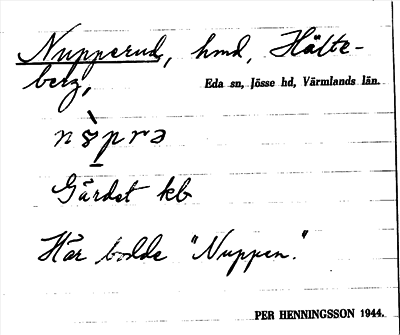 Nupperud, hmd, Hälte-
berg,
Eda sn, Jösse hd, Värmlands län.
Gärdet kb
Här bodde "Nuppen."
PER HENNINGSSON 1944.